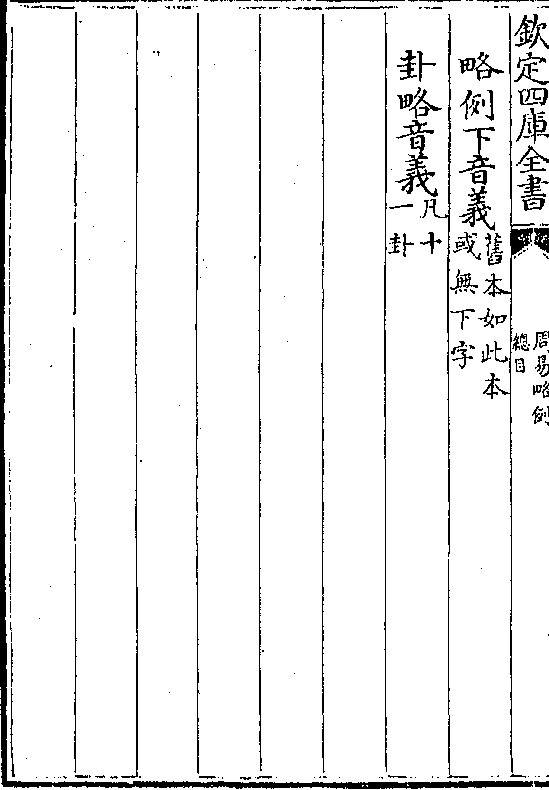 欽定四庫全書
周易略例
總目
略例下音義舊本如此本或無下字
卦略音義凡十一卦